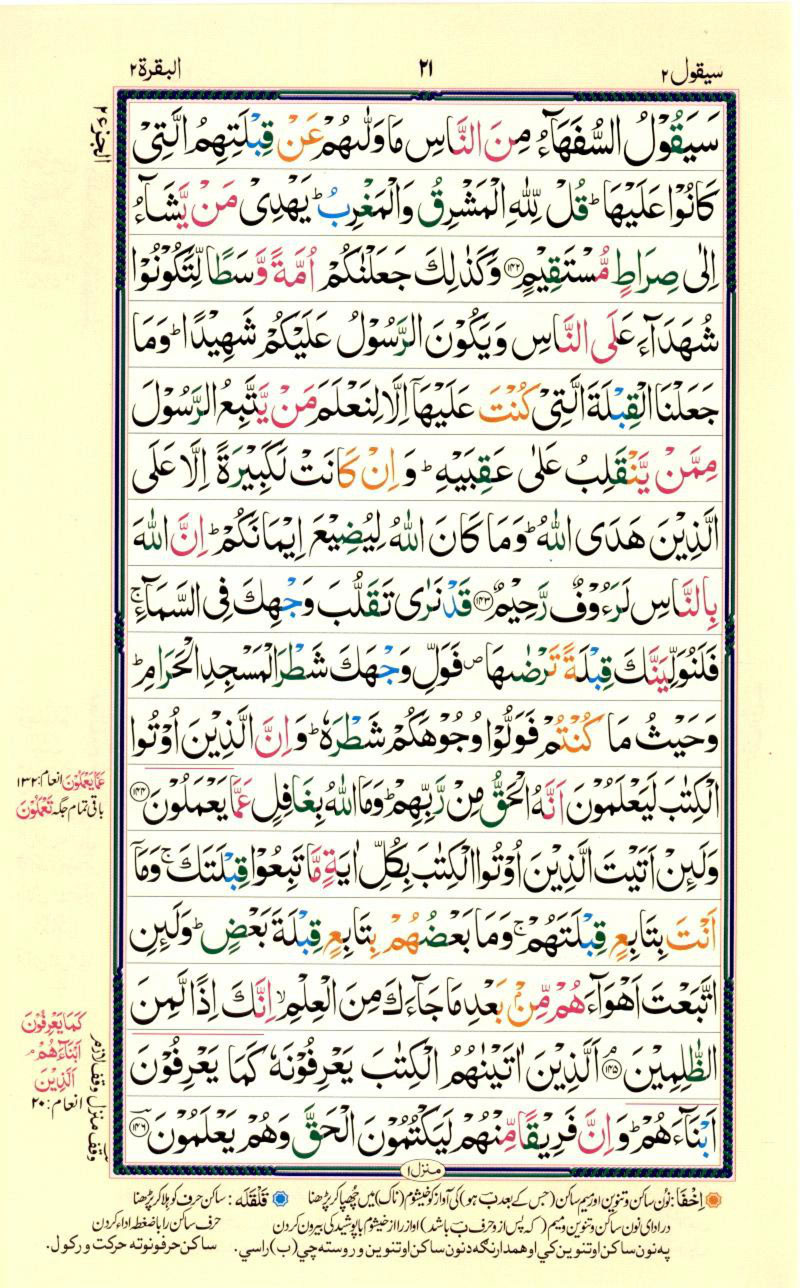 سيقول ٢
٢١
البقرة ٢
الجزء ٢
سَيَقُوْلُ السُّفَهَآءُ مِنَ النَّاسِ مَا وَلّٰىهُمْ عَنْ قِبْلَتِهِمُ الَّتِىْ
كَانُوْا عَلَيْهَا ؕ قُلْ لِّلّٰهِ الْمَشْرِقُ وَالْمَغْرِبُ ؕ يَهْدِىْ مَنْ يَّشَآءُ
اِلٰى صِرَاطٍ مُّسْتَقِيْمٍ ۝۱۴۲ وَكَذٰلِكَ جَعَلْنٰكُمْ اُمَّةً وَّسَطًا لِّتَكُوْنُوْا
شُهَدَآءَ عَلَى النَّاسِ وَيَكُوْنَ الرَّسُوْلُ عَلَيْكُمْ شَهِيْدًا ؕ وَمَا
جَعَلْنَا الْقِبْلَةَ الَّتِىْ كُنْتَ عَلَيْهَآ اِلَّا لِنَعْلَمَ مَنْ يَّتَّبِعُ الرَّسُوْلَ
مِمَّنْ يَّنْقَلِبُ عَلٰى عَقِبَيْهِ ؕ وَاِنْ كَانَتْ لَكَبِيْرَةً اِلَّا عَلَى
الَّذِيْنَ هَدَى اللّٰهُ ؕ وَمَا كَانَ اللّٰهُ لِيُضِيْعَ اِيْمَانَكُمْ ؕ اِنَّ اللّٰهَ
بِالنَّاسِ لَرَءُوْفٌ رَّحِيْمٌ ۝۱۴۳ قَدْ نَرٰى تَقَلُّبَ وَجْهِكَ فِى السَّمَآءِ ۚ
فَلَنُوَلِّيَنَّكَ قِبْلَةً تَرْضٰىهَا ۪ فَوَلِّ وَجْهَكَ شَطْرَ الْمَسْجِدِ الْحَرَامِ ؕ
وَحَيْثُ مَا كُنْتُمْ فَوَلُّوْا وُجُوْهَكُمْ شَطْرَهٗ ؕ وَاِنَّ الَّذِيْنَ اُوْتُوا
الْكِتٰبَ لَيَعْلَمُوْنَ اَنَّهُ الْحَقُّ مِنْ رَّبِّهِمْ ؕ وَمَا اللّٰهُ بِغَافِلٍ عَمَّا يَعْمَلُوْنَ ۝۱۴۴
وَلَىِٕنْ اَتَيْتَ الَّذِيْنَ اُوْتُوا الْكِتٰبَ بِكُلِّ اٰيَةٍ مَّا تَبِعُوْا قِبْلَتَكَ ۚ وَمَآ
اَنْتَ بِتَابِعٍ قِبْلَتَهُمْ ۚ وَمَا بَعْضُهُمْ بِتَابِعٍ قِبْلَةَ بَعْضٍ ؕ وَلَىِٕنِ
اتَّبَعْتَ اَهْوَآءَهُمْ مِّنْۢ بَعْدِ مَا جَآءَكَ مِنَ الْعِلْمِ ۙ اِنَّكَ اِذًا لَّمِنَ
الظّٰلِمِيْنَ ۝۱۴۵ اَلَّذِيْنَ اٰتَيْنٰهُمُ الْكِتٰبَ يَعْرِفُوْنَهٗ كَمَا يَعْرِفُوْنَ
اَبْنَآءَهُمْ ؕ وَاِنَّ فَرِيْقًا مِّنْهُمْ لَيَكْتُمُوْنَ الْحَقَّ وَهُمْ يَعْلَمُوْنَ ۝۱۴۶
عَمَّا يَعْمَلُوْنَ انعام: ۱۳۲
باقی تمام جگہ تَعْمَلُوْنَ
كَمَا يَعْرِفُوْنَ
اَبْنَآءَهُمْ ۘ
اَلَّذِيْنَ
انعام: ۲۰
وقف منزل وقف لازم
منزل ۱
اِخْفَا: نون ساکن و تنوین اور میم ساکن (جس کے بعد ب ہو) کی آواز کو خیشوم (ناک) میں چھپا کر پڑھنا
قَلْقَلَه: ساکن حرف کو ہلا کر پڑھنا
در ادای نون ساکن و تنوین و میم (که پس از و حرف ب باشد) اواز را از خیشوم با پوشیدگی بیرون کردن
حرف ساکن را با ضغطه اداء کردن
په نون ساکن او تنوین کي او همدارنګه د نون ساکن او تنوین و روسته چي (ب) راسي.
ساکن حرفونو ته حرکت ورکول.